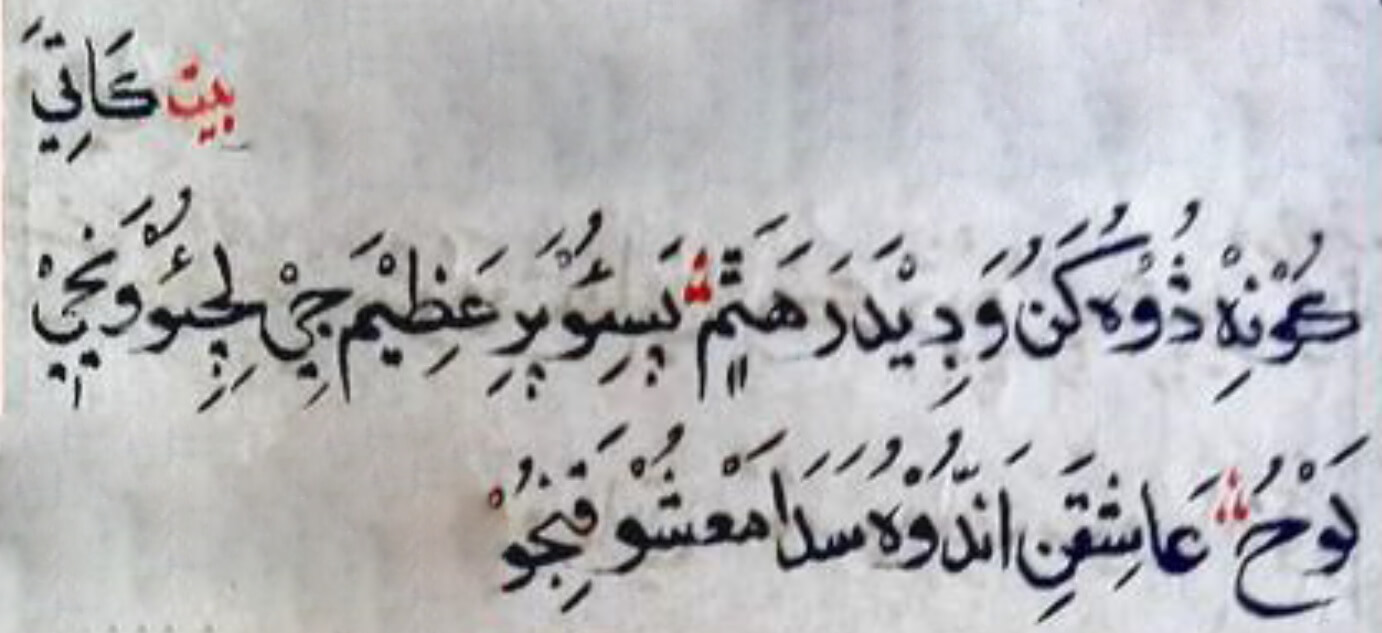 بيت كَاتِيَ
كُمْونِهْ ذُوْه كَنُ وَدِيْدَرَ هَتٍمْ؞ پَسِئُوْ پَرِ عَظِيْمَ جِيْ لِجِئُوْ وَنَجِيْ
لَوْحُ؞ عَاشِقَنِ اَندُّوْه سَدَا مَعْشُوْ قِنجُوْ